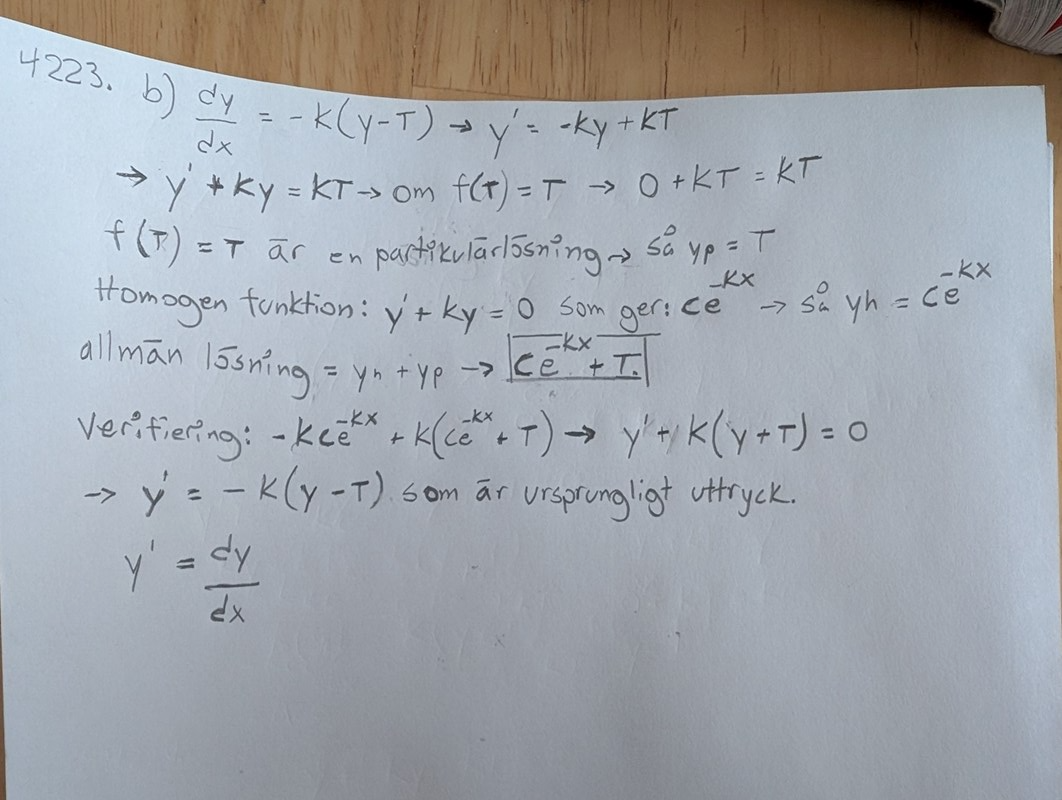 4223. b) dy/dx = -K(y-T) → y' = -Ky + KT
→ y' + Ky = KT → om f(T) = T → 0 + KT = KT
f(T) = T är en partikulärlösning → så yp = T
Homogen funktion: y' + ky = 0 som ger: Ce^-KX → så yh = Ce^-KX
allmän lösning = yh + yp → Ce^-KX + T.
Verifiering: -KCe^-KX + K(Ce^-KX + T) → y' + K(y+T) = 0
→ y' = -K(y-T) som är ursprungligt uttryck.
y' = dy/dx